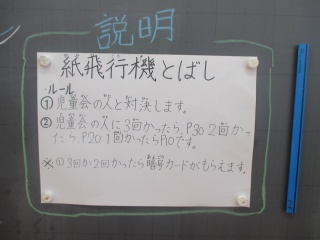 説明
紙飛行機とばし
・ルール
①児童会の人と対決します。
②児童会の人に3回かったら,P30 2回かっ
たら,P20 1回かったらP10です。
※①3回か2回かったら暗号カードがもらえます。